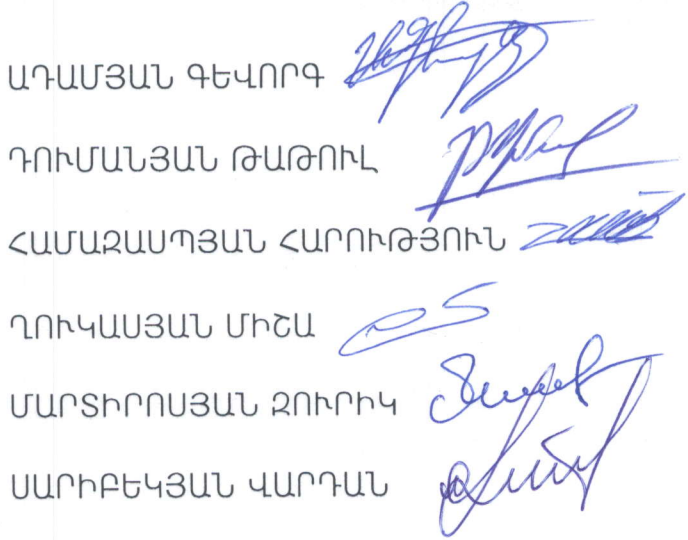 ԱԴԱՄՅԱՆ ԳԵՎՈՐԳ
ԴՈՒՄԱՆՅԱՆ ԹԱԹՈՒԼ
ՀԱՄԱԶԱՍՊՅԱՆ ՀԱՐՈՒԹՅՈՒՆ
ՂՈՒԿԱՍՅԱՆ ՄԻՇԱ
ՄԱՐՏԻՐՈՍՅԱՆ ԶՈՒՐԻԿ
ՍԱՐԻԲԵԿՅԱՆ ՎԱՐԴԱՆ